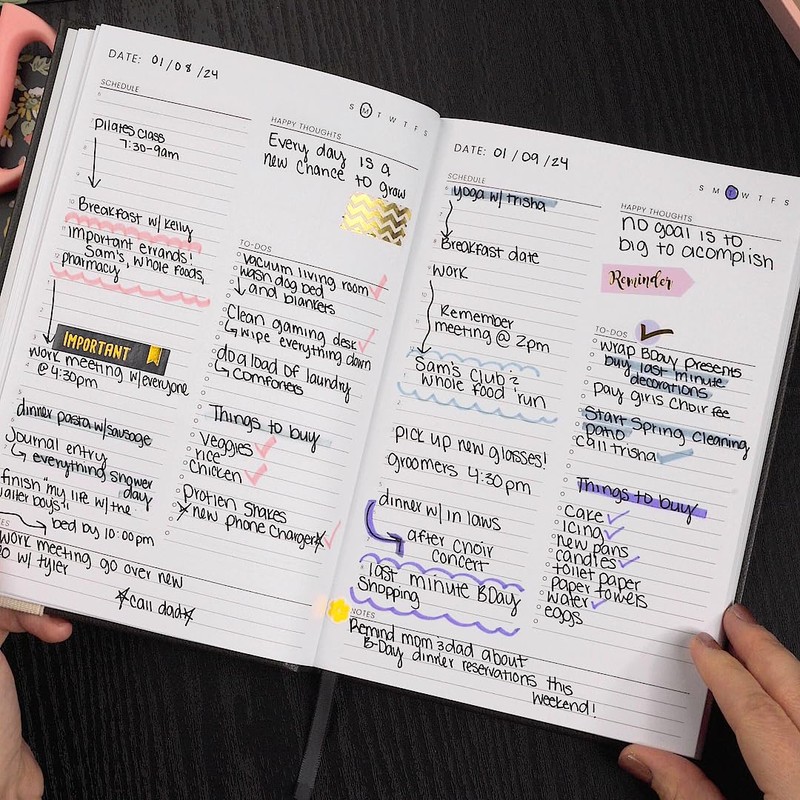 DATE: 01/08/24
S M T W T F S
SCHEDULE
6
7
Pilates class
7:30-9am
8
9
10
Breakfast w/ Kelly
11
important errands!
Sam's, Whole foods,
12
pharmacy
IMPORTANT
work meeting w/everyone
@ 4:30pm
dinner pasta w/sausage
Journal entry
everything shower
day
finish "my life w/ the
bed by 10:00pm
HAPPY THOUGHTS
Every day is a
new chance to grow
TO-DOS
vacuum living room
wash dog bed
and blankets
Clean gaming desk
wipe everything down
do a load of laundry
comforters
Things to buy
veggies
rice
chicken
protien shakes
new phone charger
work meeting go over new
w/ tyler
call dad
DATE: 01/09/24
S M T W T F S
SCHEDULE
6
yoga w/ trisha
7
8
Breakfast date
9
work
10
11
Remember
meeting @ 2pm
Sam's club &
whole food run
pick up new glasses!
groomers 4:30pm
dinner w/ in laws
after choir
concert
last minute BDay
Shopping
HAPPY THOUGHTS
no goal is to
big to acomplish
Reminder
TO-DOS
wrap BDay presents
buy last minute
decorations
pay girls choir fee
Start Spring Cleaning
patio
call trisha
Things to buy
cake
icing
new pans
candles
toilet paper
paper towels
water
eggs
NOTES
Remind mom & dad about
B-Day dinner reservations this
weekend!